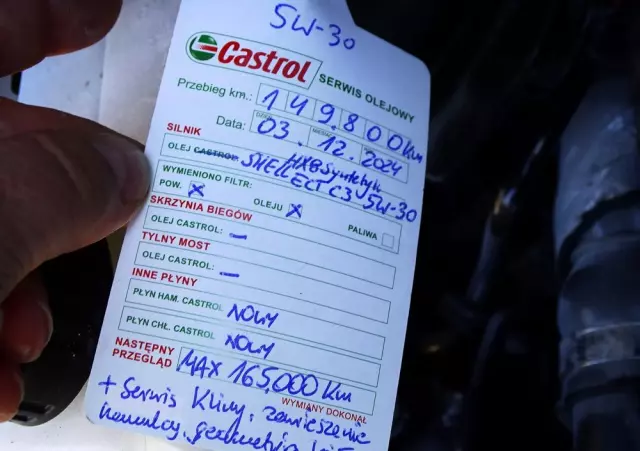 5W-30
Castrol SERWIS OLEJOWY
Przebieg km.: 149.800 km
DZIEŃ
Data: 03. 12. 2024
SILNIK HX8 Syntetyk
OLEJ CASTROL: SHELL ECT C3 5W-30
WYMIENIONO FILTR:
POW. X OLEJU X PALIWA
SKRZYNIA BIEGÓW
OLEJ CASTROL: –
TYLNY MOST
OLEJ CASTROL: –
INNE PŁYNY
PŁYN HAM. CASTROL NOWY
PŁYN CHŁ. CASTROL NOWY
NASTĘPNY
PRZEGLĄD MAX 165.000 Km
WYMIANY DOKONAŁ
+ Serwis Klimy, zawieszenie
hamulcy, geometria